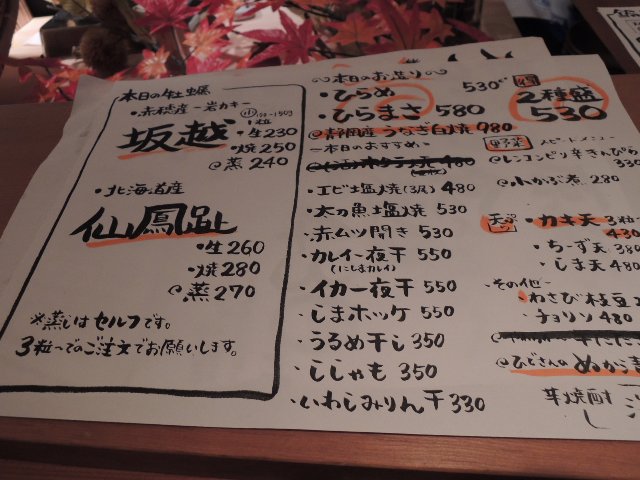 本日の牡蠣
・赤穂産 岩カキ
坂越
・1粒
・生230
・焼250
@蒸240
・北海道産
仙鳳趾
・生260
・焼280
@蒸270
※蒸しはセルフです。
3粒〜でのご注文でお願いします。
〜本日のお造り〜
・ひらめ 530
・ひらまさ 580
@静岡産うなぎ白焼 980
ー本日のおすすめ
・エビ塩焼(3尾) 480
・太刀魚塩焼 530
・赤ムツ開き 530
・カレイ一夜干 550
(にしまカレイ)
・イカ一夜干 550
・しまホッケ 550
・うるめ干し 350
・ししゃも 350
・いわしみりん干 330
2種盛
530
野菜 スピードメニュー
@レンコンピリ辛きんぴら
330
@小かぶ煮 280
・カキ天 3粒
430
・ちーず天 380
・しま天 480
・その他ー
・わさび枝豆
・チョリソ 480
@ひでさんの ぬか漬
芋焼酎